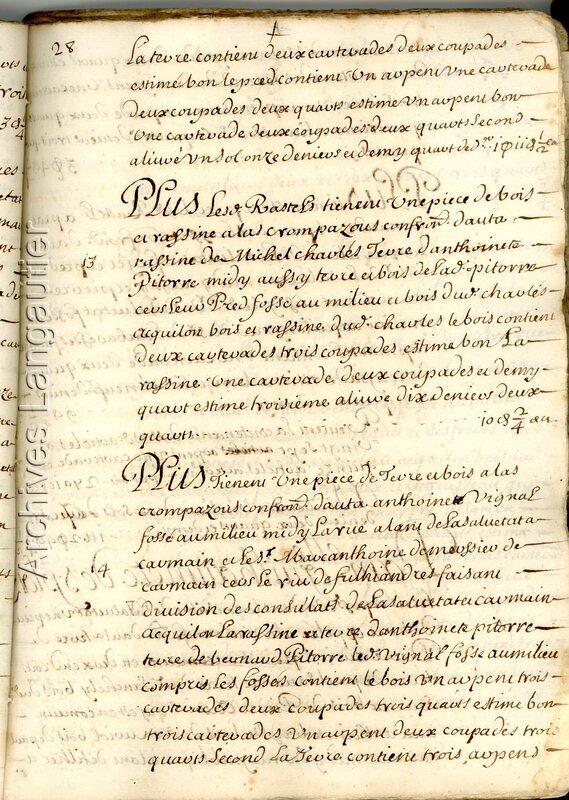 28
La terre contient deux carterades deux coupades
estime bon le pred contient Un arpent Une carterade
deux coupades deux quarts estime Un arpent bon
Une carterade deux coupades deux quarts Second
alivré Un Sol onze deniers et demy quart de
PLUS Lesd. Rastels tienent Une piece de bois
et rassine a las crompazous confron. dauta
13
rassine de Michel charles Terre danthoinete
Pitorre midy aussy terre et bois de Lad. pitorre
cers Leur Pred fosse au milieu et bois dud. charles
acquilon bois et rassine dud. charles le bois contient
deux carterades trois coupades estime bon La
rassine Une carterade deux coupades et demy
quart estime troisieme alivré dix deniers deux
quarts
PLUS Tienent Une piece de Terre et bois a las
crompazous confron. dauta anthoinete Vignal
fosse au milieu midy La rue alant de La Salvetat a
14
carmain et Le Sr. Marcanthoine de massieu de
carmain cers le riu de fulhandres faisant
division des consulats de La Salvetat et carmain
acquilon La rassine et terre danthoinete pitorre
terre de bernard Pitorre led. Vignal fosse au milieu
compris Les fosses contient le bois Un arpent trois
carterades deux coupades trois quarts estime bon
trois carterades Un arpent deux coupades trois
quarts Second La Terre contient trois arpens
Archives Langautier